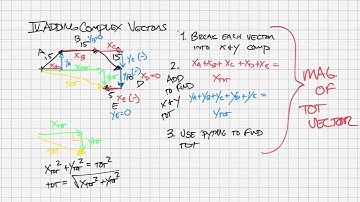 IV. ADDING COMPLEX VECTORS
B
YB=0
A
15
15
XC
YC (-)
1.5
YA
XB
XA
YD (-)
XD=0
D
5
E
XE (-)
YE=0
1. BREAK EACH VECTOR
INTO X+Y COMP
2.
ADD
TO FIND
X+Y
TOT
XA+XB+XC+XD+XE =
XTOT
YA+YB+YC+YD+YE=
YTOT
3. USE PYTHAG TO FIND
TOT
MAG
OF
TOT
VECTOR
XTOT
YTOT
TOT
XTOT² + YTOT² = TOT²
TOT = √XTOT² + YTOT²